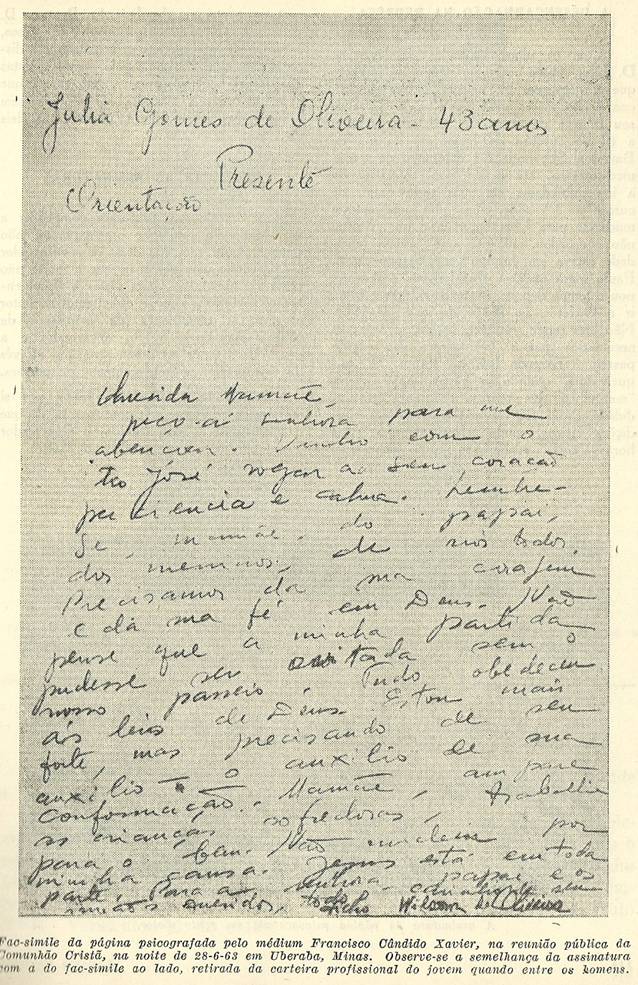 Julia Gomes de Oliveira - 43 anos
Presente
Orientação
Querida Mamãe,
peço-a senhora para me
abençoar. Venho com o
tio José rogar ao seu coração
paciencia e calma. Lembre-
se, mamãe, do papai,
dos meninos, de nós todos.
Precisamos da sua coragem
e da sua fé em Deus. Não
pense que a minha partida
pudesse ser evitada sem o
nosso passeio. Tudo obedeceu
ás leis de Deus. Estou mais
forte, mas precisando de seu
auxílio — o auxílio de sua
conformação. Mamãe, ampare
as crianças sofredoras, trabalhe
para o bem. Não mudem por
minha causa. Jesus está em toda
parte. Para a senhora, papai e os
irmãos queridos, todo carinho de seu
filho Wilson de Oliveira
Fac-simile da página psicografada pelo médium Francisco Cândido Xavier, na reunião pública da
Comunhão Cristã, na noite de 28-6-63 em Uberaba, Minas. Observe-se a semelhança da assinatura
com a do fac-simile ao lado, retirada da carteira profissional do jovem quando entre os homens.